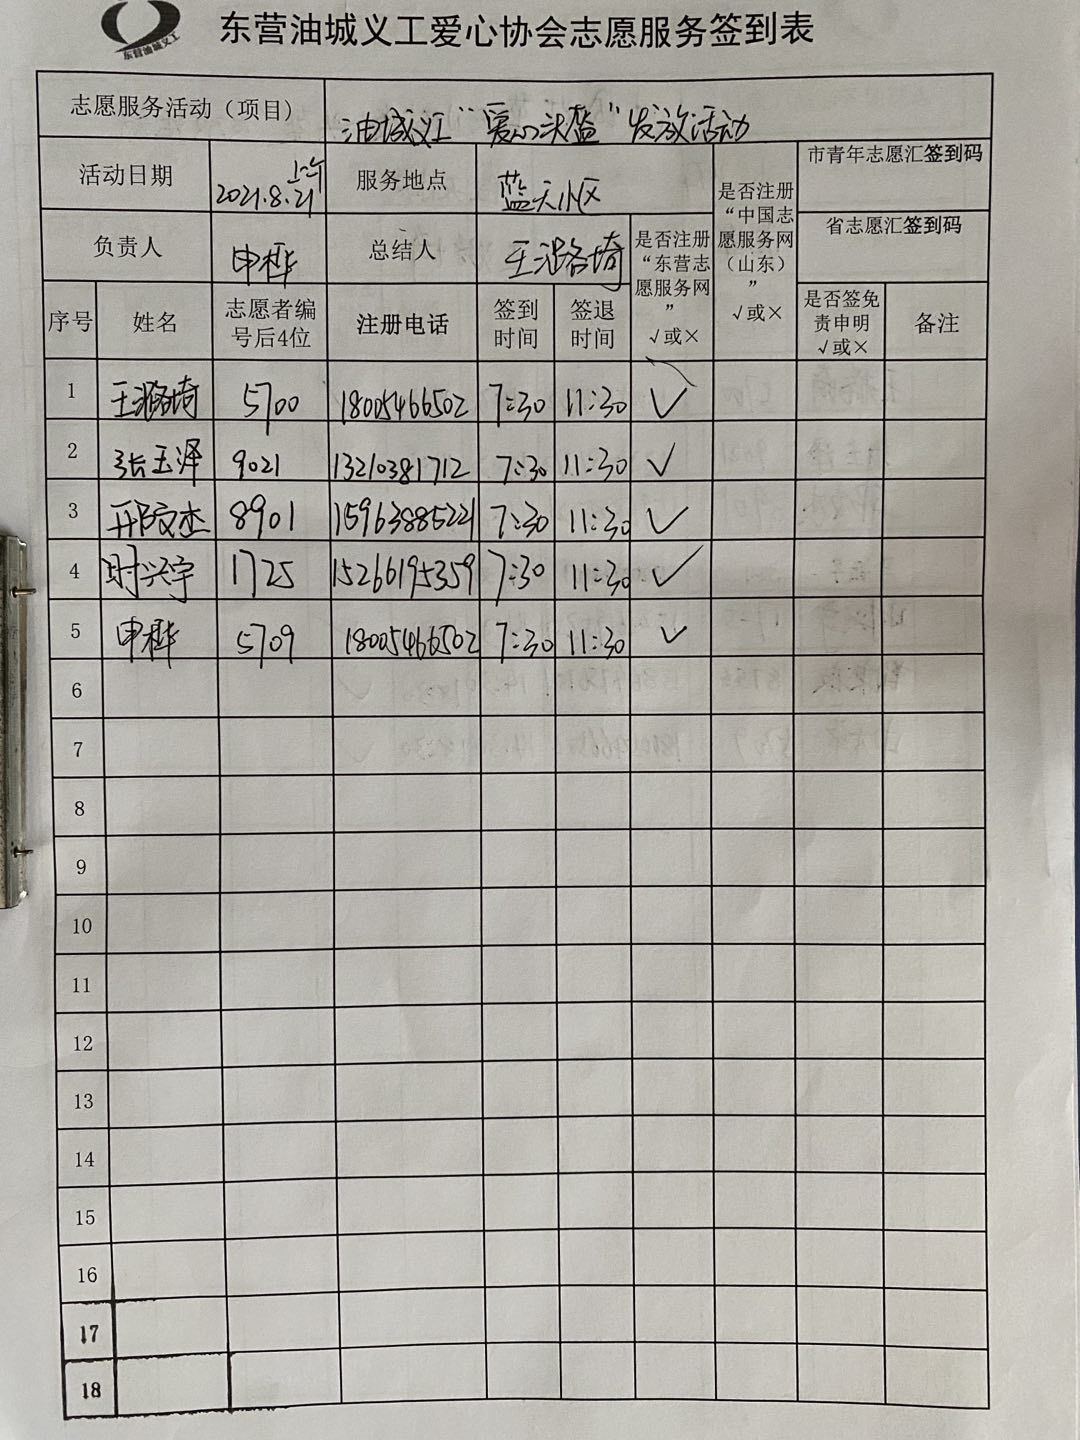 东营油城义工
东营油城义工爱心协会志愿服务签到表
志愿服务活动（项目） 油城义工“爱心头盔”发放活动
活动日期 2021.8.21 上午 服务地点 蓝天小区 是否注册“中国志愿服务网（山东）” √或× 市青年志愿汇签到码
负责人 申桦 总结人 王潞琦 是否注册“东营志愿服务网” √或× 省志愿汇签到码
序号 姓名 志愿者编号后4位 注册电话 签到时间 签退时间 是否签免责申明 √或× 备注
1 王潞琦 5700 18005466502 7:30 11:30 ✓
2 张玉泽 9021 13210381712 7:30 11:30 ✓
3 邢文杰 8901 15963885221 7:30 11:30 ✓
4 时兴宇 1725 15266195359 7:30 11:30 ✓
5 申桦 5709 18005466502 7:30 11:30 ✓
6
7
8
9
10
11
12
13
14
15
16
17
18